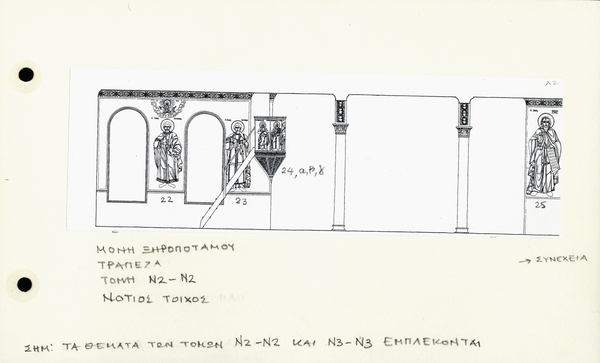 Λ2
22
23
24, α, β, γ
25
ΜΟΝΗ ΞΗΡΟΠΟΤΑΜΟΥ
ΤΡΑΠΕΖΑ
ΤΟΜΗ Ν2-Ν2
ΝΟΤΙΟΣ ΤΟΙΧΟΣ
→ ΣΥΝΕΧΕΙΑ
ΣΗΜ: ΤΑ ΘΕΜΑΤΑ ΤΩΝ ΤΟΜΩΝ Ν2-Ν2 ΚΑΙ Ν3-Ν3 ΕΜΠΛΕΚΟΝΤΑΙ